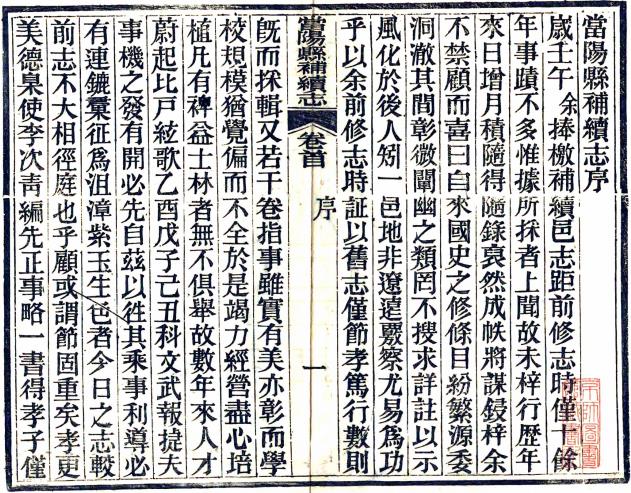 當陽縣補續志序
歲壬午余捧檄補續邑志距前修志時僅十餘
年事蹟不多惟據所採者上聞故未梓行歷年
來日增月積隨得隨錄裒然成帙將謀鋟梓余
不禁顧而喜曰自來國史之修條目紛繁源委
洞澈其間彰微闡幽之類罔不搜求詳註以示
風化於後人矧一邑地非遼遠覈察尤易為功
乎以余前修志時証以舊志僅節孝篤行數則
當陽縣補續志
卷首
序
一
旣而採輯又若干卷指事雖實有美亦彰而學
校規模猶覺偏而不全於是竭力經營盡心培
植凡有裨益士林者無不俱舉故數年來人才
蔚起比戶絃歌乙酉戊子己丑科文武報捷夫
事機之發有開必先自茲以徃其乘事利導必
有連鑣彙征為沮漳紫玉生色者今日之志較
前志不大相徑庭也乎顧或謂節固重矣孝更
美德臬使李次靑編先正事略一書得孝子僅